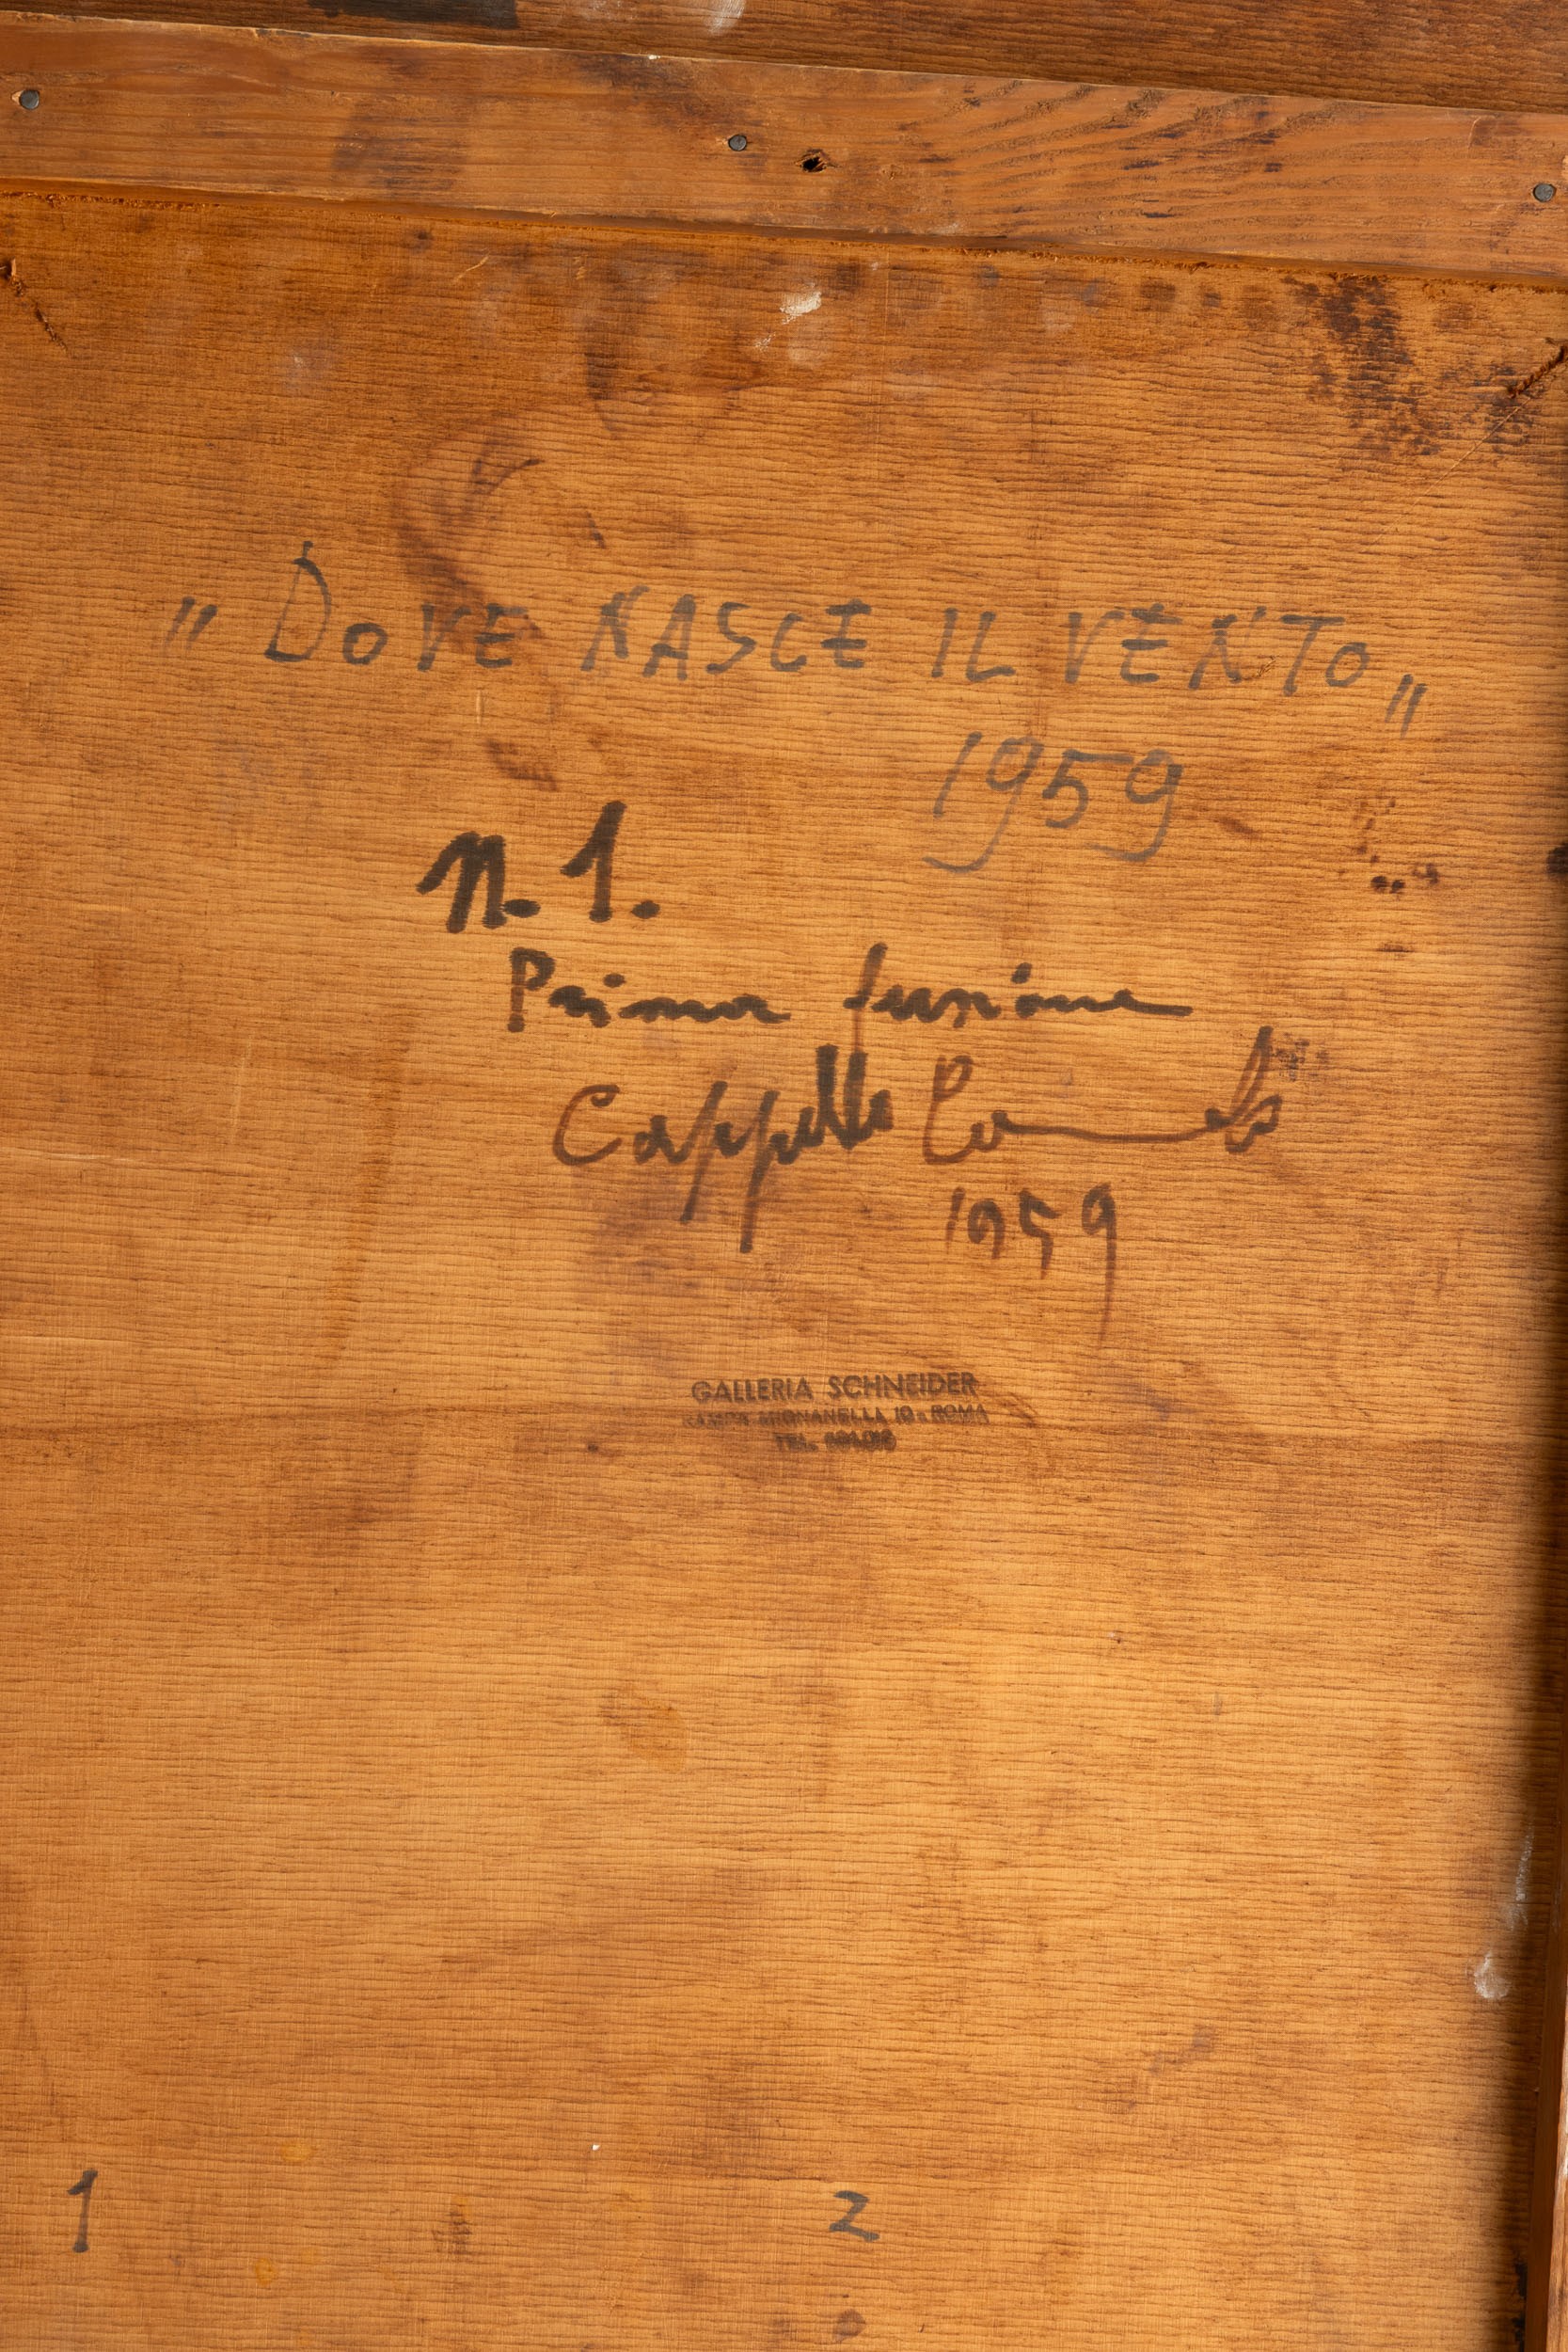 "DOVE NASCE IL VENTO„
1959
n. 1.
Prima fusione
Cappello Carmelo
1959
GALLERIA SCHNEIDER
RAMPA MIGNANELLA 10 - ROMA
TEL.
1 2